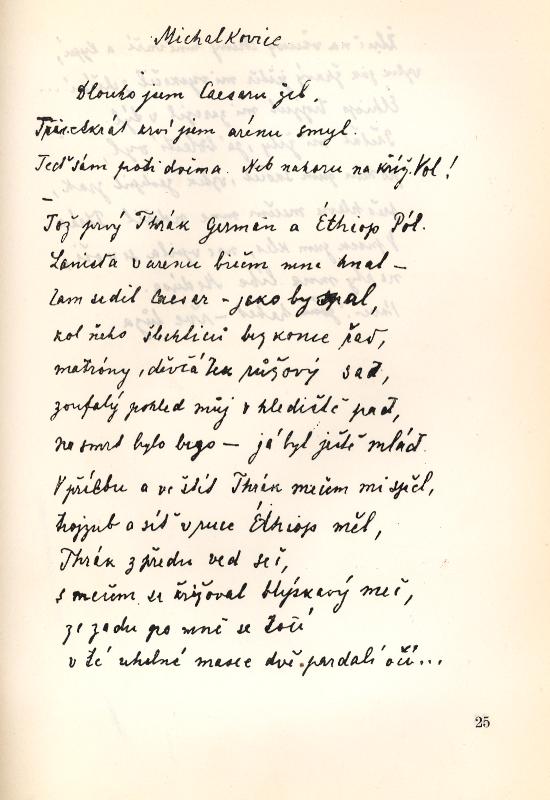 Michalkovice
Dlouho jsem Caesaru žel.
Třicetkrát krví jsem arénu smyl.
Teď sám proti dvěma. Neb nahoru na kříž. Vol!
—
Tož prvý Thrák Germán a Éthiop Pól.
Lanista v arénu bičem mne hnal –
tam seděl Caesar – jako by spal,
kol něho šlechticů bez konce řad,
matróny, děvčátek růžový sad,
zoufalý pohled můj v hlediště pad,
na smrt bylo brzo – já byl ještě mlád.
V přílbu a ve štít Thrák mečem mi spěl,
trojzub a síť v ruce Éthiop měl,
Thrák z předu ved seč,
s mečem se křižoval blýskavý meč,
ze zadu po mně se točí
v té uhelné masce dvě pardalí oči...
25